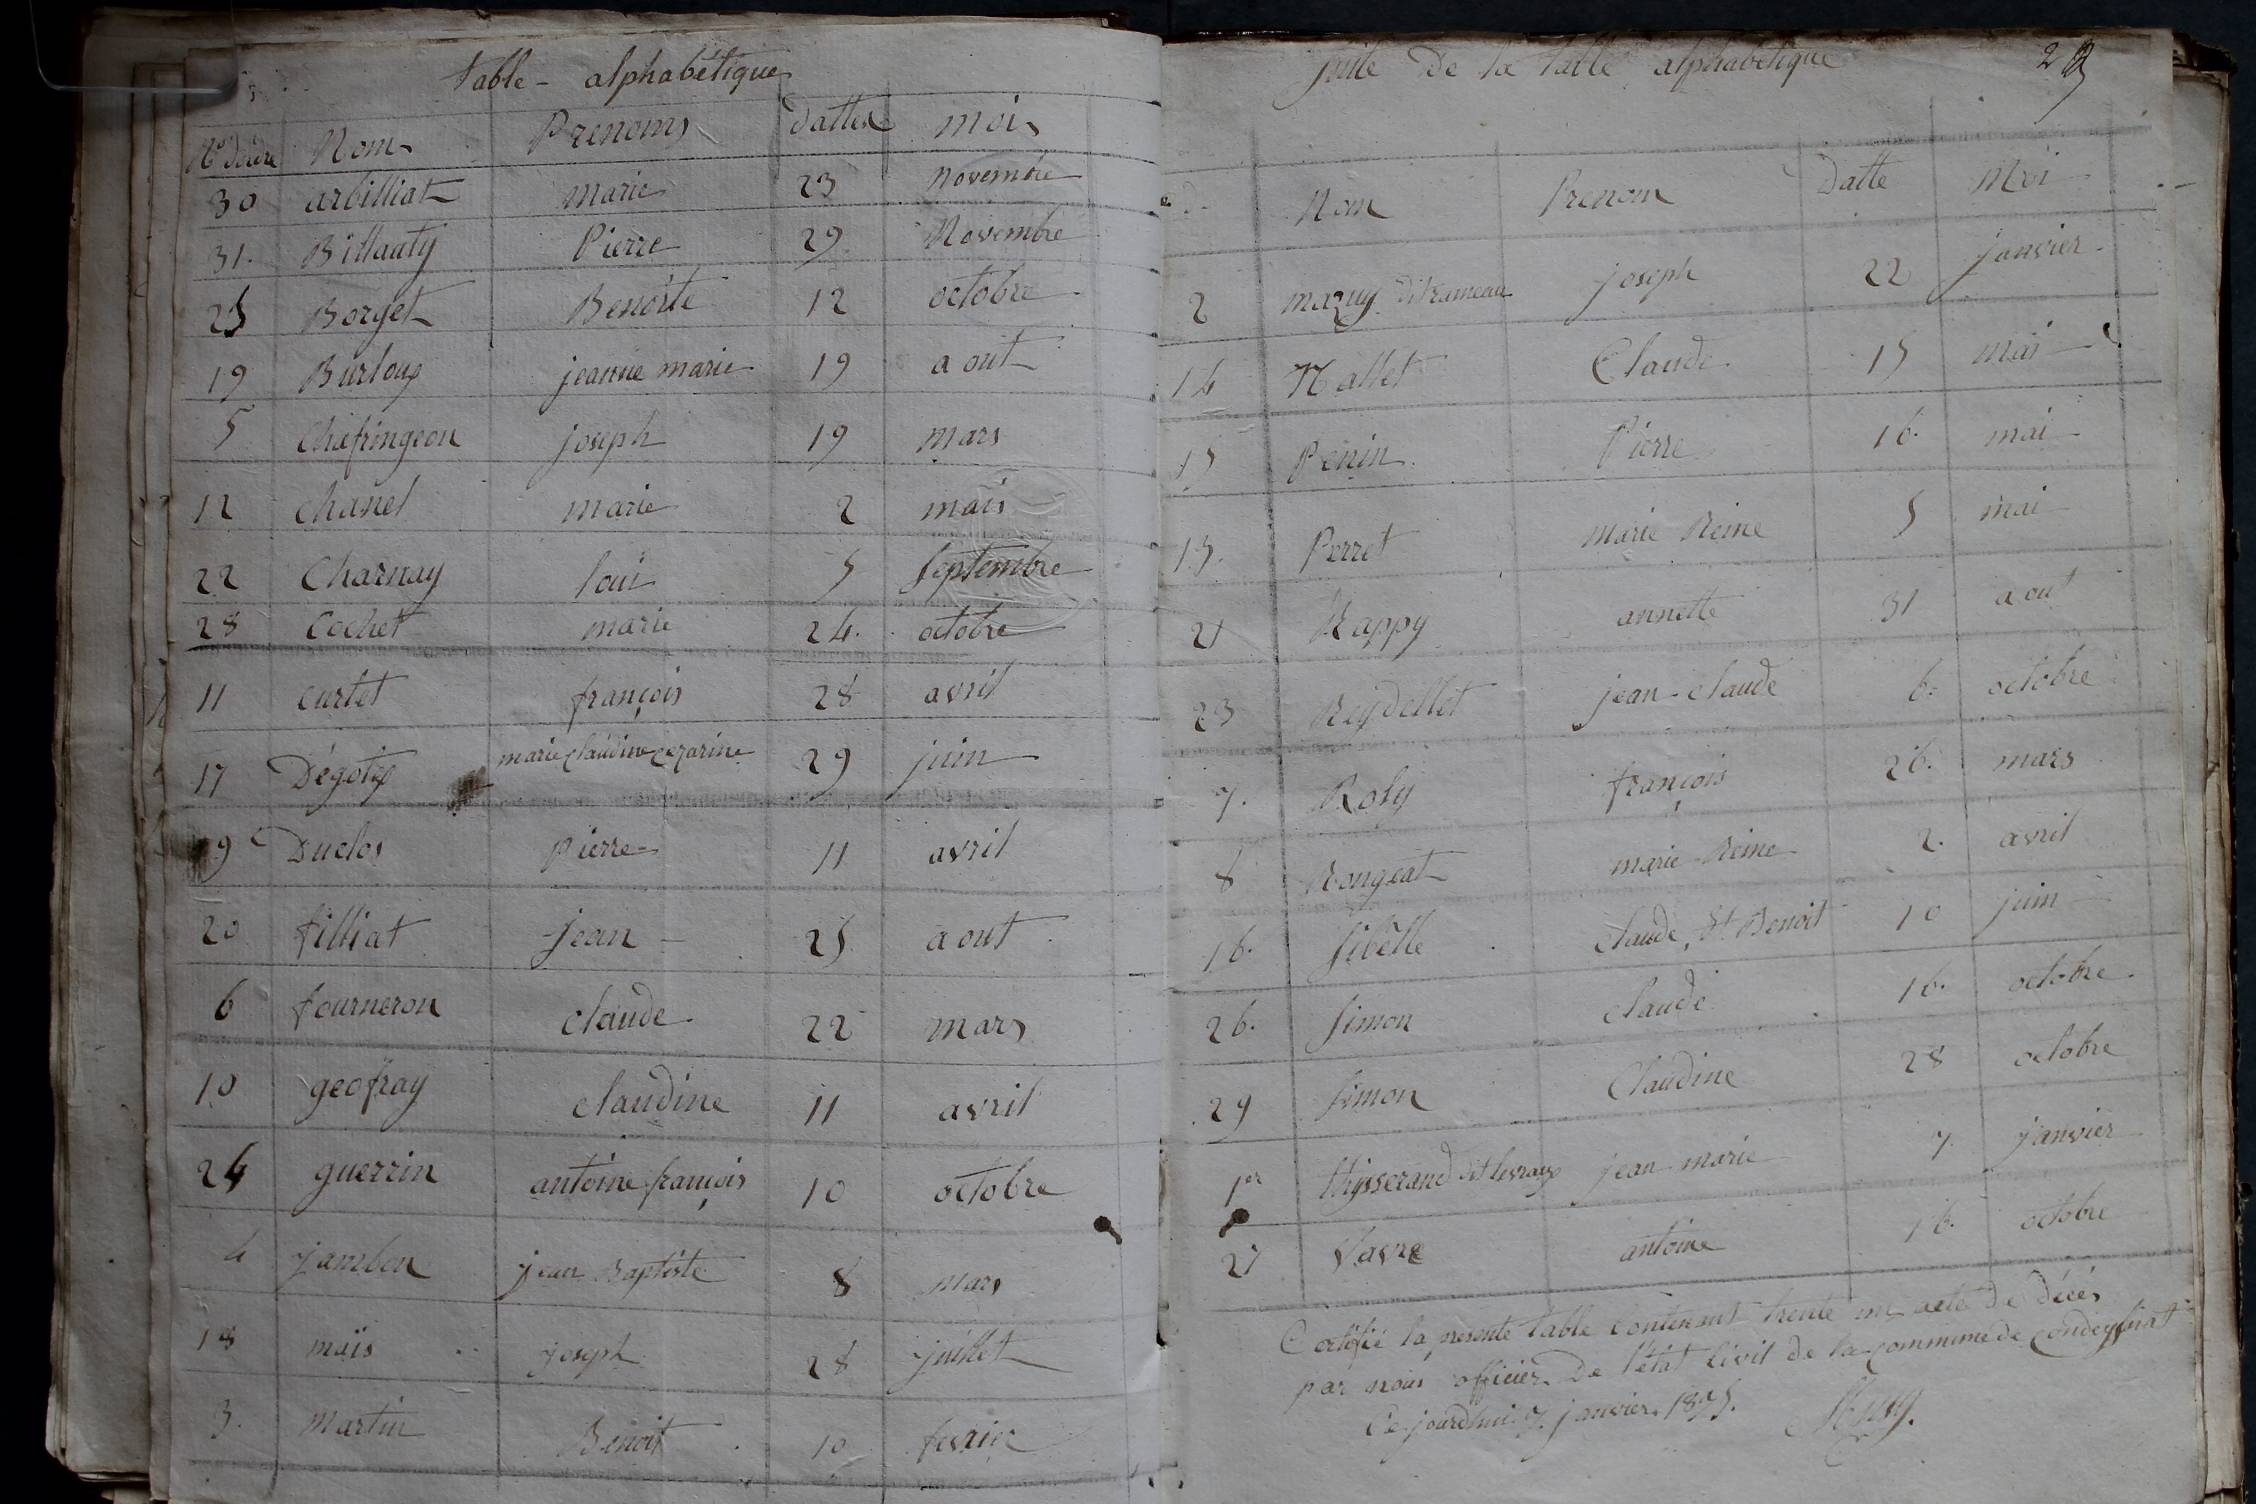 table - alphabétique
N.º dordre Nom Prenoms dattes mois
30 arbilliat marie 23 Novembre
31. Billaaty Pierre 29 Novembre
25 Borget Benoite 12 octobre
19 Burloup jeanne marie 19 aout
5 Chafringeon joseph 19 mars
12 Chanel marie 2 mais
22 Charnay loui 5 septembre
28 Cochet marie 24. octobre
11 curtet françois 28 avril
17 Dégotx marie claudine cezarine 29 juin
9 Duclos Pierre 11 avril
20 filliat jean 25 aout
6 fourneron claude 22 mars
10 geofray claudine 11 avril
24 guerrin antoine françois 10 octobre
4 jambon jean Baptiste 8 mars
18 maïs joseph 28 juillet
3. Martin Benoit 10 fevrier
suite de la table alphabetique
Nom Prenom Datte Moi
2 mazuy dit rameau joseph 22 janvier
14 Nallet Claude 15 mai
15 Penin Pierre 16. mai
13. Perret Marie Reine 5 mai
21 Rappy annette 31 aout
23 Reydellet jean-claude 6. octobre
7. Roly françois 26. mars
8 Rongeat marie Reine 2. avril
16. sibelle claude, St Benoit 10 juin
26. simon claude 16. octobre
29 simon Claudine 28 octobre
1er thysserand dit levraux jean marie 7. janvier
27 Vavre antoine 16. octobre
Certifié la presente table contenant trente un acte de décés
par nous officier De l'état civil de la commune de Condeyssiat
Ce jourdhui 7. janvier